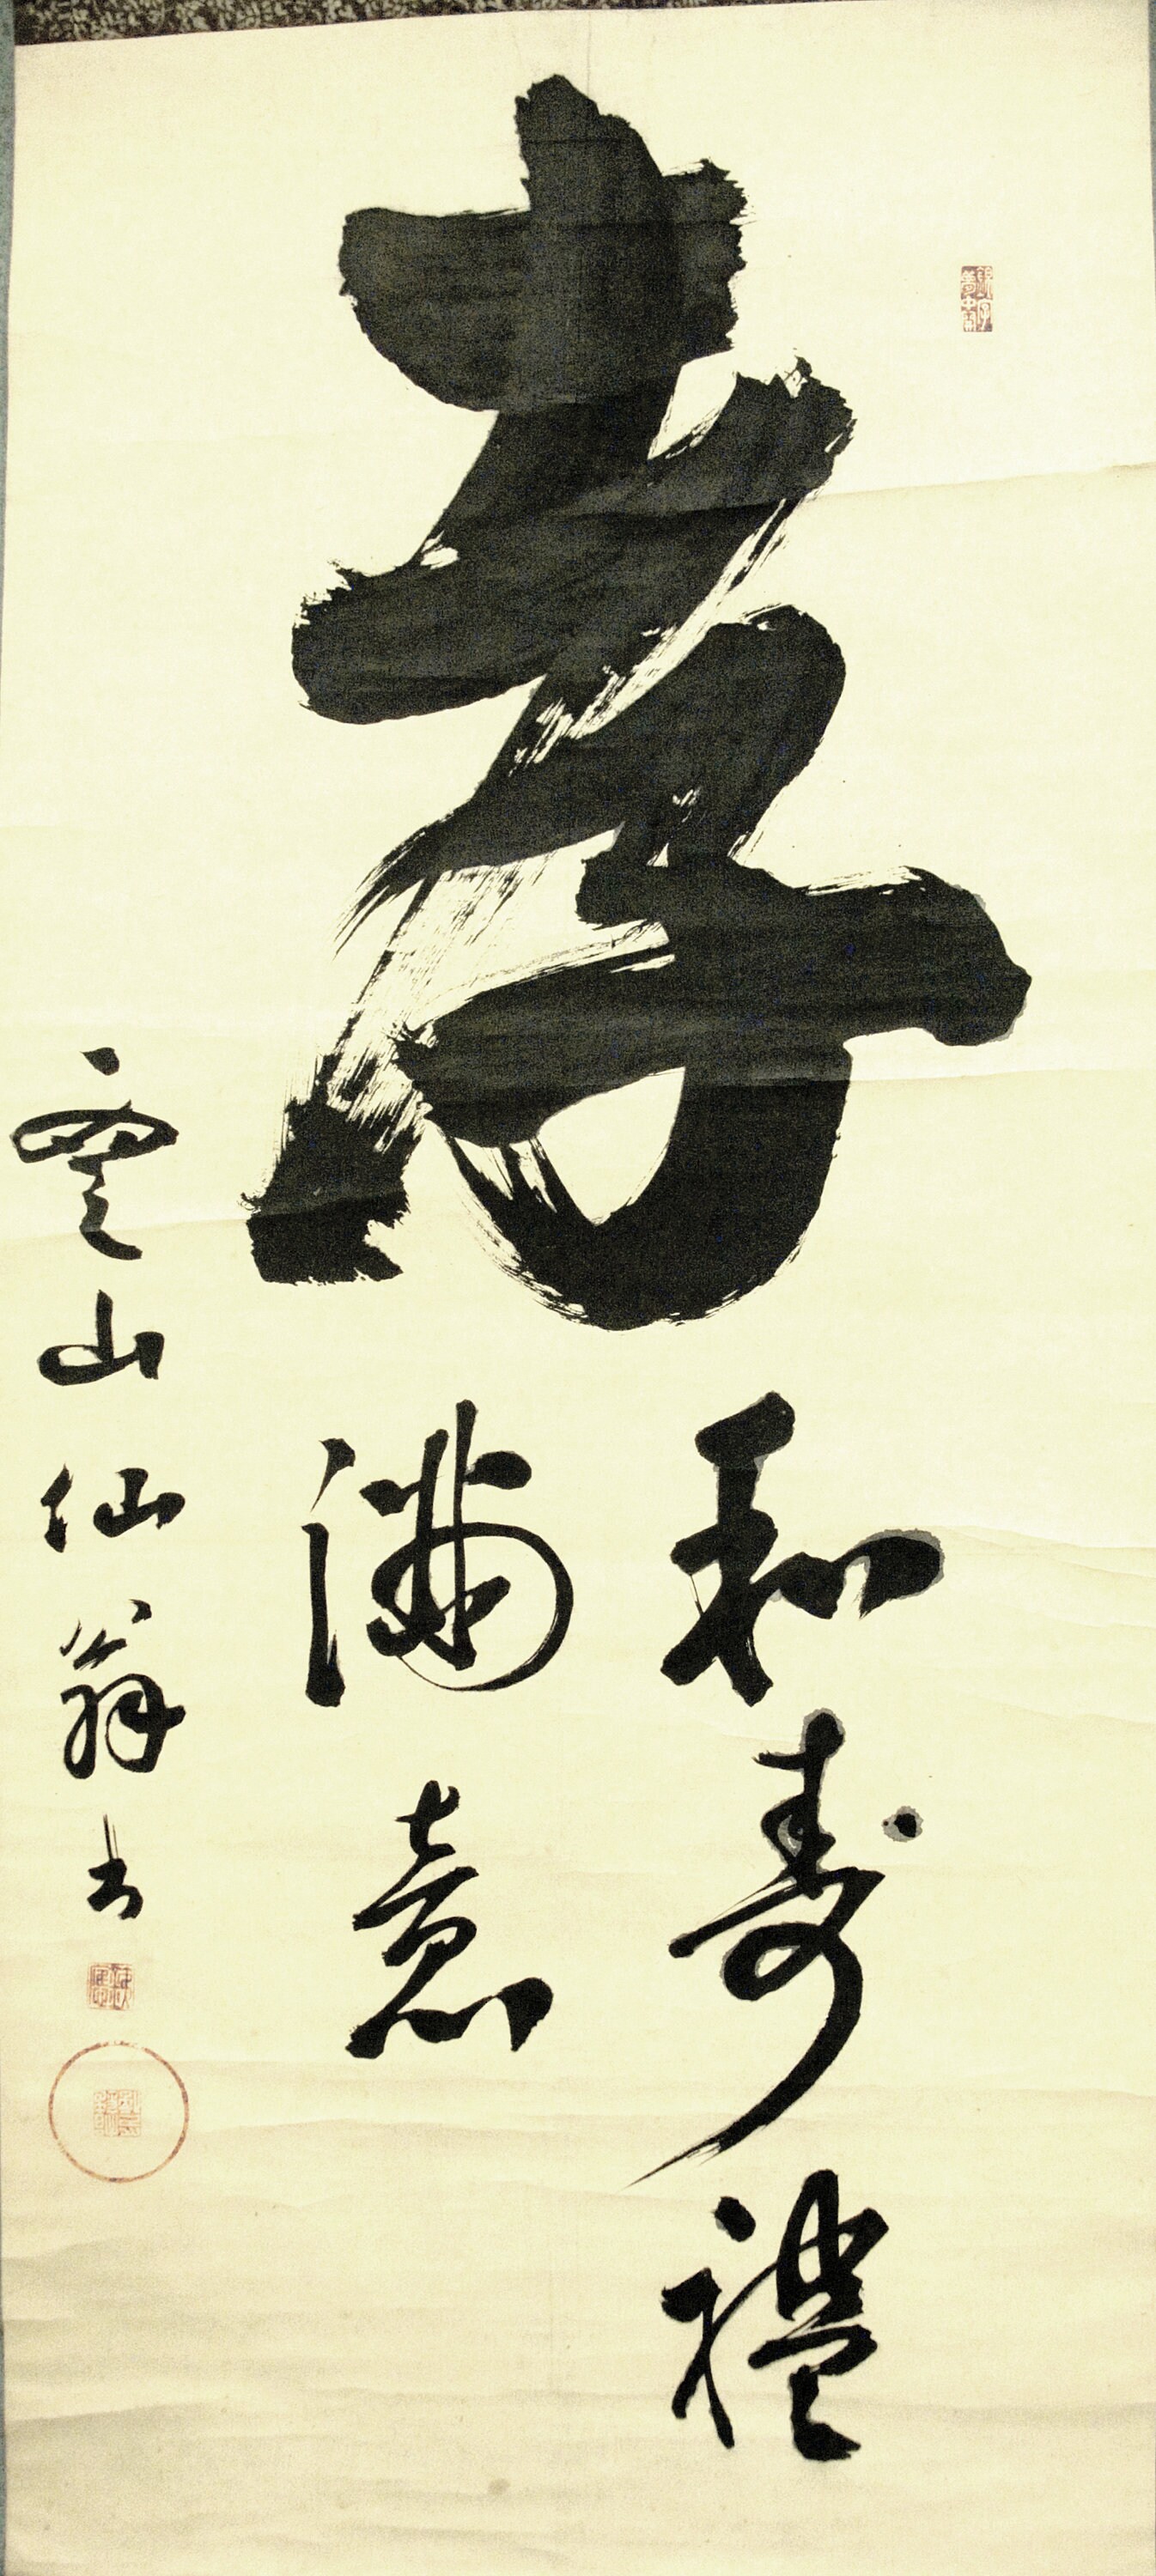 孝
和寿禮
満意
雲山仙翁書